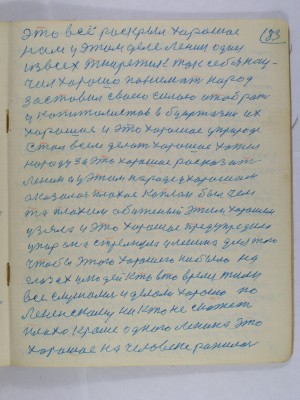 183
это всё раскрыл хорошое
нам у этом деле Ленин один
из всех тиаретик так себя нау-
чил хорошо понимат народ
заставил своею силою отобрат
у капиталистов в буржазии их
хорошоя и это хорошоя у природе
стал всем делат хорошоя хотел
народу за это хорошоя рассказат
Ленин а у этим народе у хорошем
оказалас плохая Каплан был чем
та плохим обиженый этим хорошем
узяла и это хорошоя предупредила
упор она стрельнула у Ленина для того
чтобы этого хорошего ни было на
глазех у людей кто в то время тиму
все слушали и делали хорошо по
Ленинскому ни кто не скажет
плохо кроме одного Ленина это
хорошоя на человеке